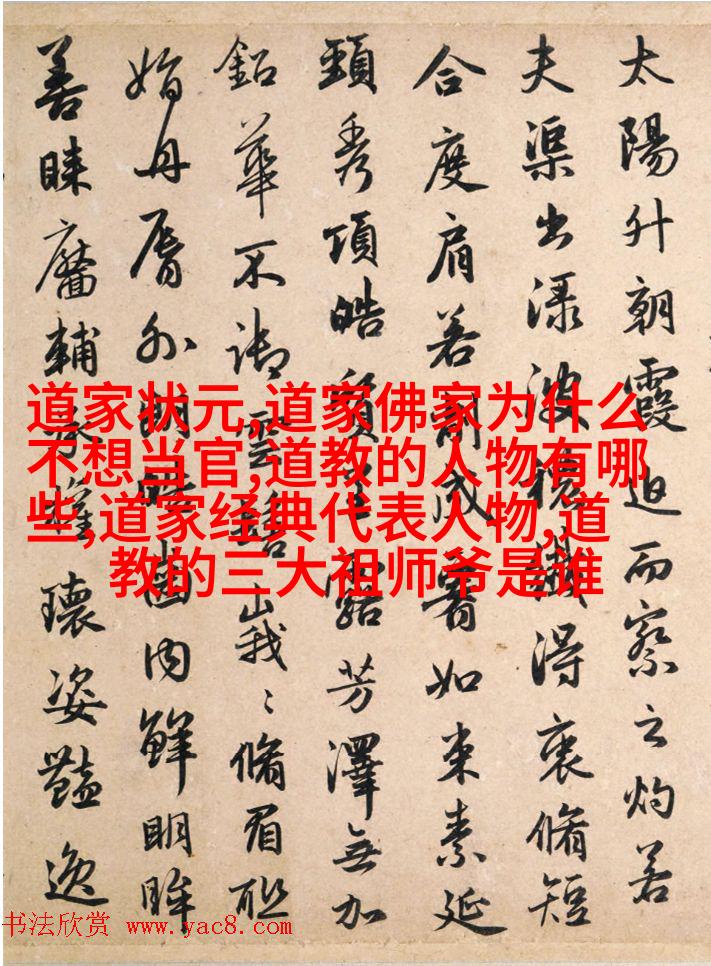 太陽升朝霞迫而察之灼若
夫渠出渌波穠纖得衷脩短
合度肩若削成如束素延
頸秀項皓質呈露芳澤無加
鈆華不御雲髻峩〻脩眉聯
娟丹脣外朗皓齒内鮮明眸
善睞靨輔承權瓌姿豔逸
道家状元,道家佛家为什么
不想当官,道教的人物有哪
些,道家经典代表人物,道
教的三大祖师爷是谁
书法欣赏 www.yac8.com